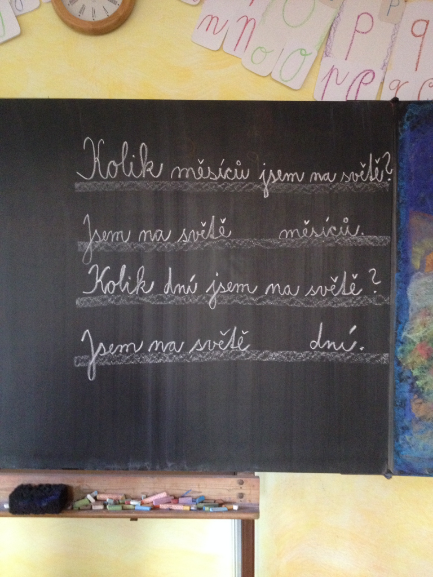 n N o O p P p P q
Kolik měsíců jsem na světě?
Jsem na světě měsíců.
Kolik dní jsem na světě?
Jsem na světě dní.